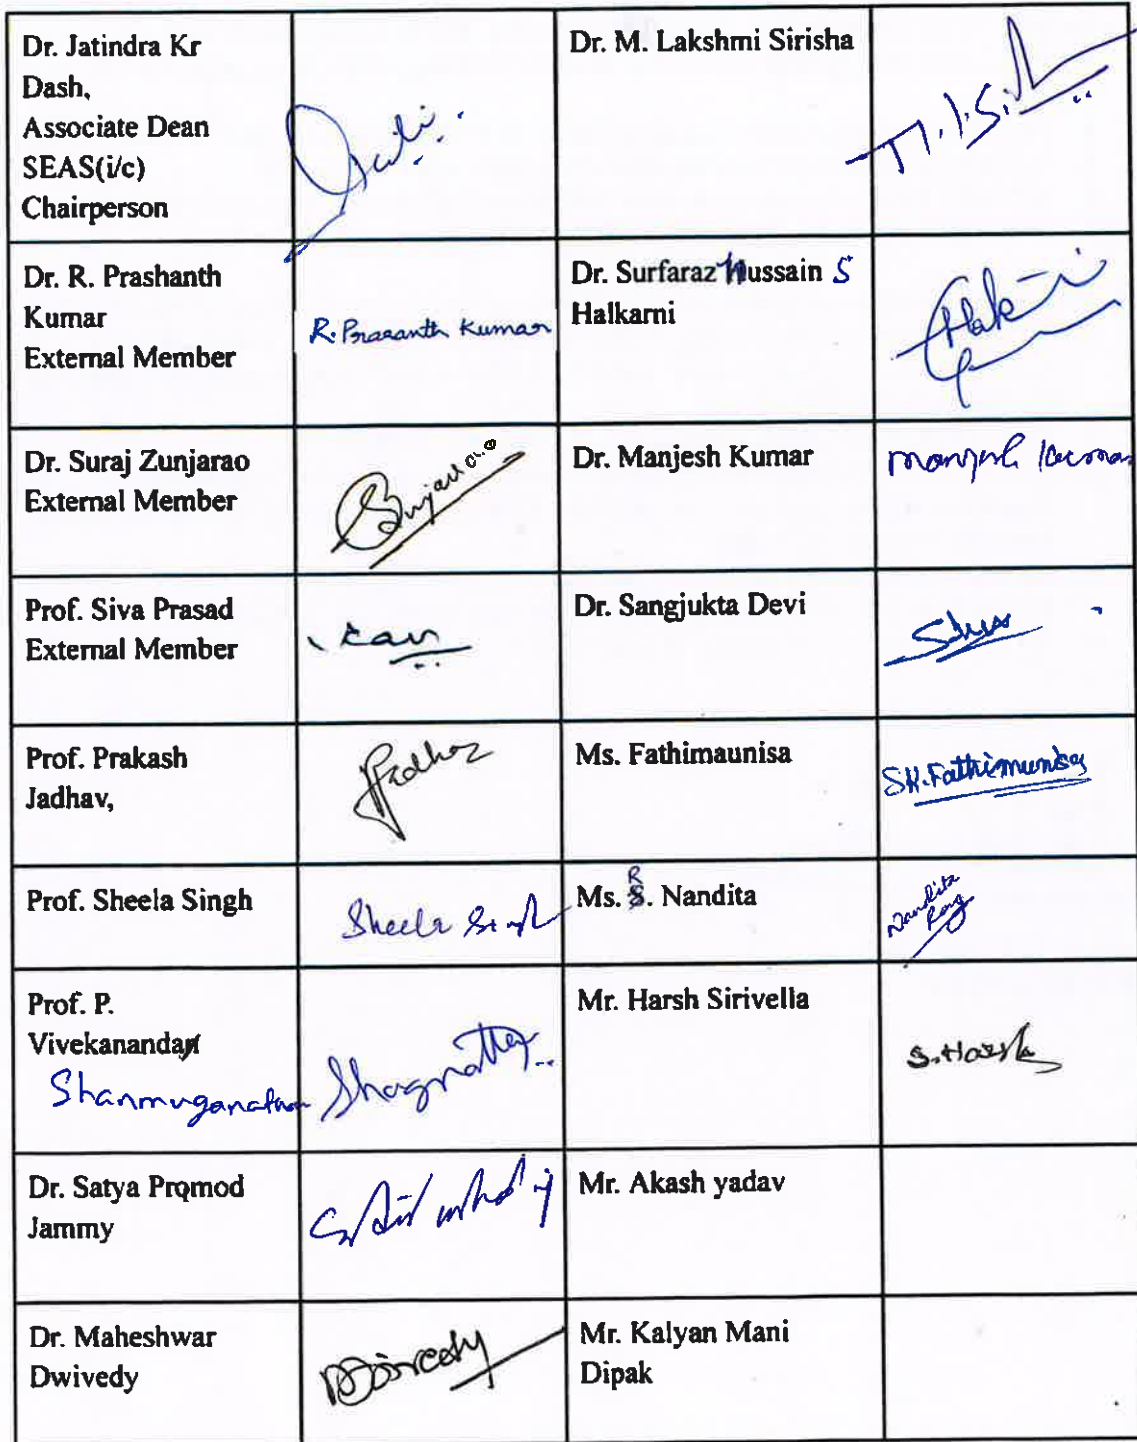 Dr. Jatindra Kr
Dash,
Associate Dean
SEAS(i/c)
Chairperson
Dr. M. Lakshmi Sirisha
Dr. R. Prashanth
Kumar
External Member
R. Prasanth Kumar
Dr. Surfaraz Hussain S
Halkarni
Dr. Suraj Zunjarao
External Member
Dr. Manjesh Kumar
Manjesh Kumar
Prof. Siva Prasad
External Member
Dr. Sangjukta Devi
Prof. Prakash
Jadhav,
Jadhav
Ms. Fathimaunisa
SK. Fathimunisa
Prof. Sheela Singh
Sheela Singh
Ms. R. Nandita
Nandita
Prof. P.
Vivekanandan
Shanmuganathan
Mr. Harsh Sirivella
S. Harsh
Dr. Satya Promod
Jammy
Mr. Akash yadav
Dr. Maheshwar
Dwivedy
Dwivedy
Mr. Kalyan Mani
Dipak